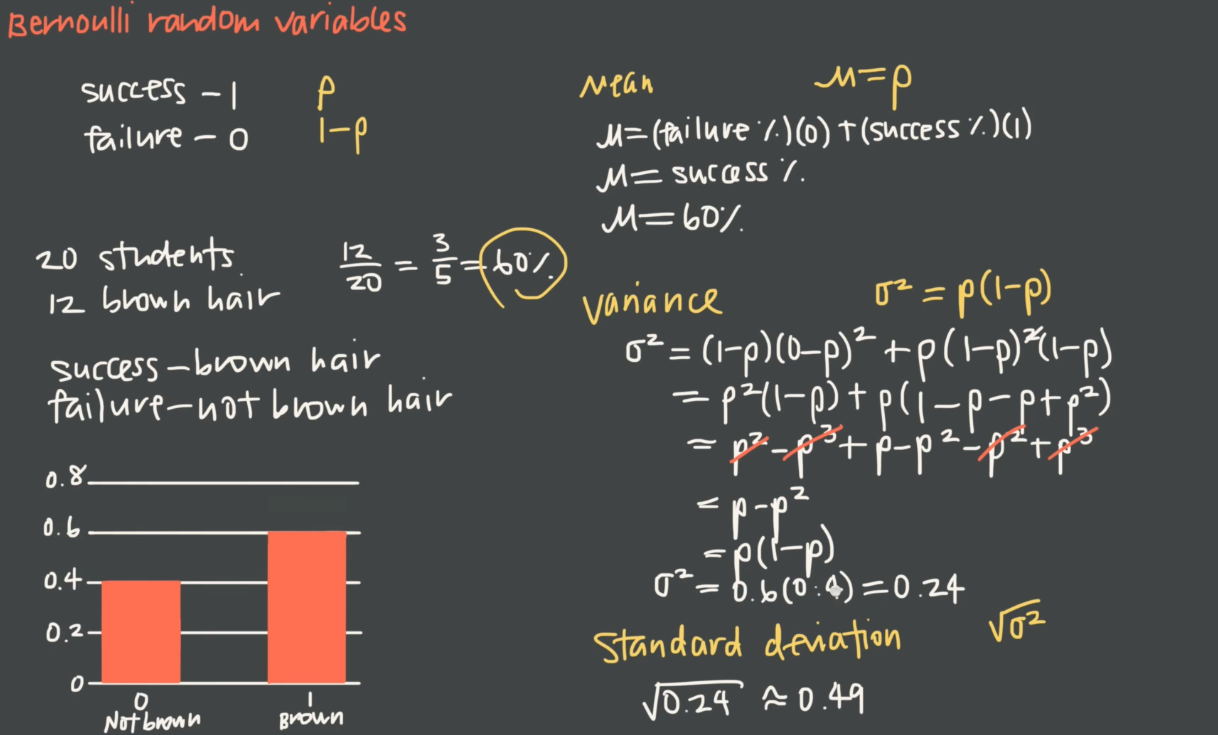 Bernoulli random variables
success - 1 p
failure - 0 1-p
20 students
12 brown hair
12/20 = 3/5 = 60%
success - brown hair
failure - not brown hair
0.8
0.6
0.4
0.2
0
0 1
Not brown Brown
Mean μ=p
μ=(failure %)(0)+(success %)(1)
μ= success %
μ=60%
Variance σ²=p(1-p)
σ²=(1-p)(0-p)²+p(1-p)²(1-p)
=p²(1-p)+p(1-p-p+p²)
=p²-p³+p-p²-p²+p³
=p-p²
=p(1-p)
σ²=0.6(0.4)=0.24
Standard deviation √σ²
√0.24 ≈0.49